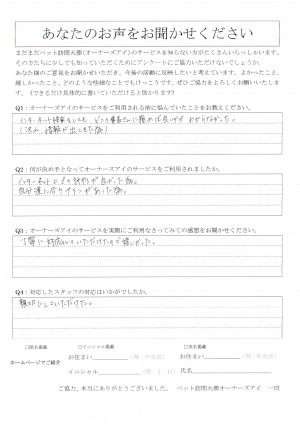 あなたのお声をお聞かせください
まだまだペット訪問火葬(オーナーズアイ)のサービスを知らない方がたくさんいらっしゃいます。
その方たちに少しでも知っていただくためにアンケートにご協力いただけないでしょうか。
あなた様のご意見をお聞かせいただき、今後の活動に反映したいと考えています。よかったこと、
嬉しかったこと、どのような些細なことでもけっこうです。ぜひご協力をよろしくお願いいたしま
す。(できるだけ具体的に書いていただけると助かります)
Q1：オーナーズアイのサービスをご利用される前に悩んでいたことをお教えください。
インターネット検索をしても、どの業者さんに頼めば良いか わからなかった。
(沢山、情報が出てきた為)
Q2：何が決め手となってオーナーズアイのサービスをご利用されましたか。
インターネットでの評判が良かった為。
自分達に合うプランがあった為。
Q3：オーナーズアイのサービスを実際にご利用なさってみての感想をお聞かせください。
丁寧に対応していただけたので嬉しかった。
Q4：対応したスタッフの対応はいかがでしたか。
親切にしていただけた。
□匿名掲載 □イニシャル掲載 □実名掲載
ホームページでご紹介
お住まい (例：中央区) お住まい (例：中央区)
イニシャル (例：I.H) 氏名
ご協力、本当にありがとうございました。 ペット訪問火葬オーナーズアイ 一同